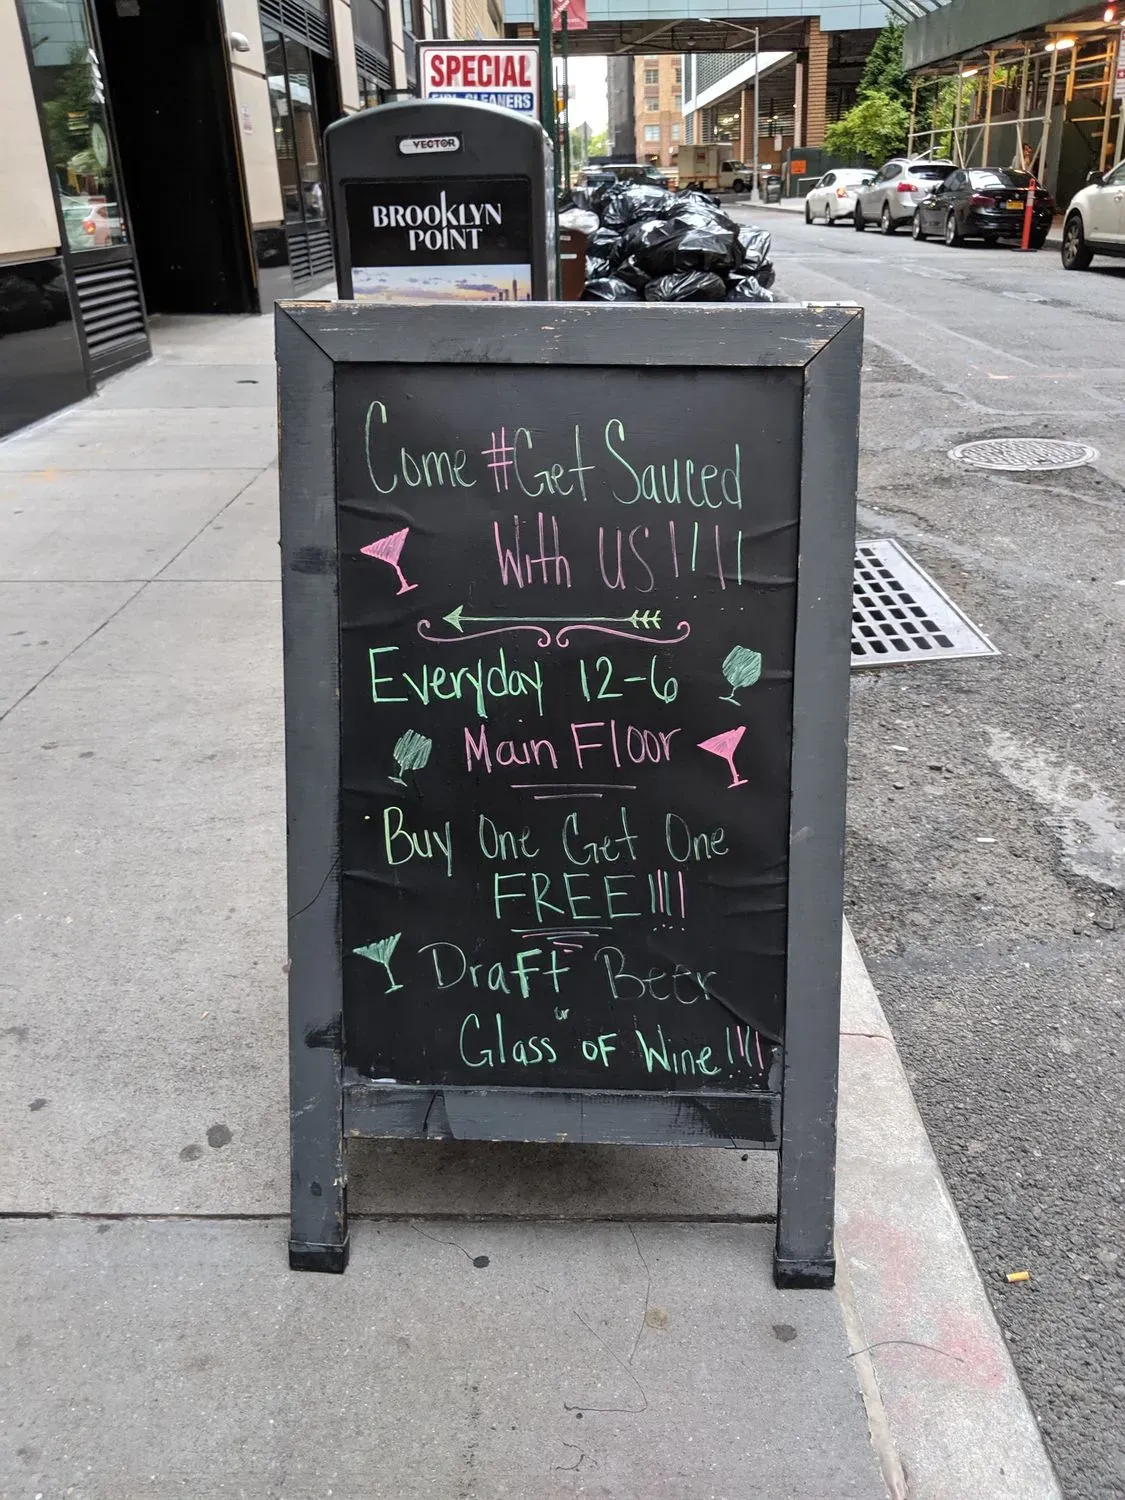 SPECIAL
CLEANERS
VECTOR
BROOKLYN
POINT
Come #Get Sauced
With US!!!!
Everyday 12-6
Main Floor
Buy One Get One
FREE!!!!
Draft Beer
or
Glass of Wine!!!!